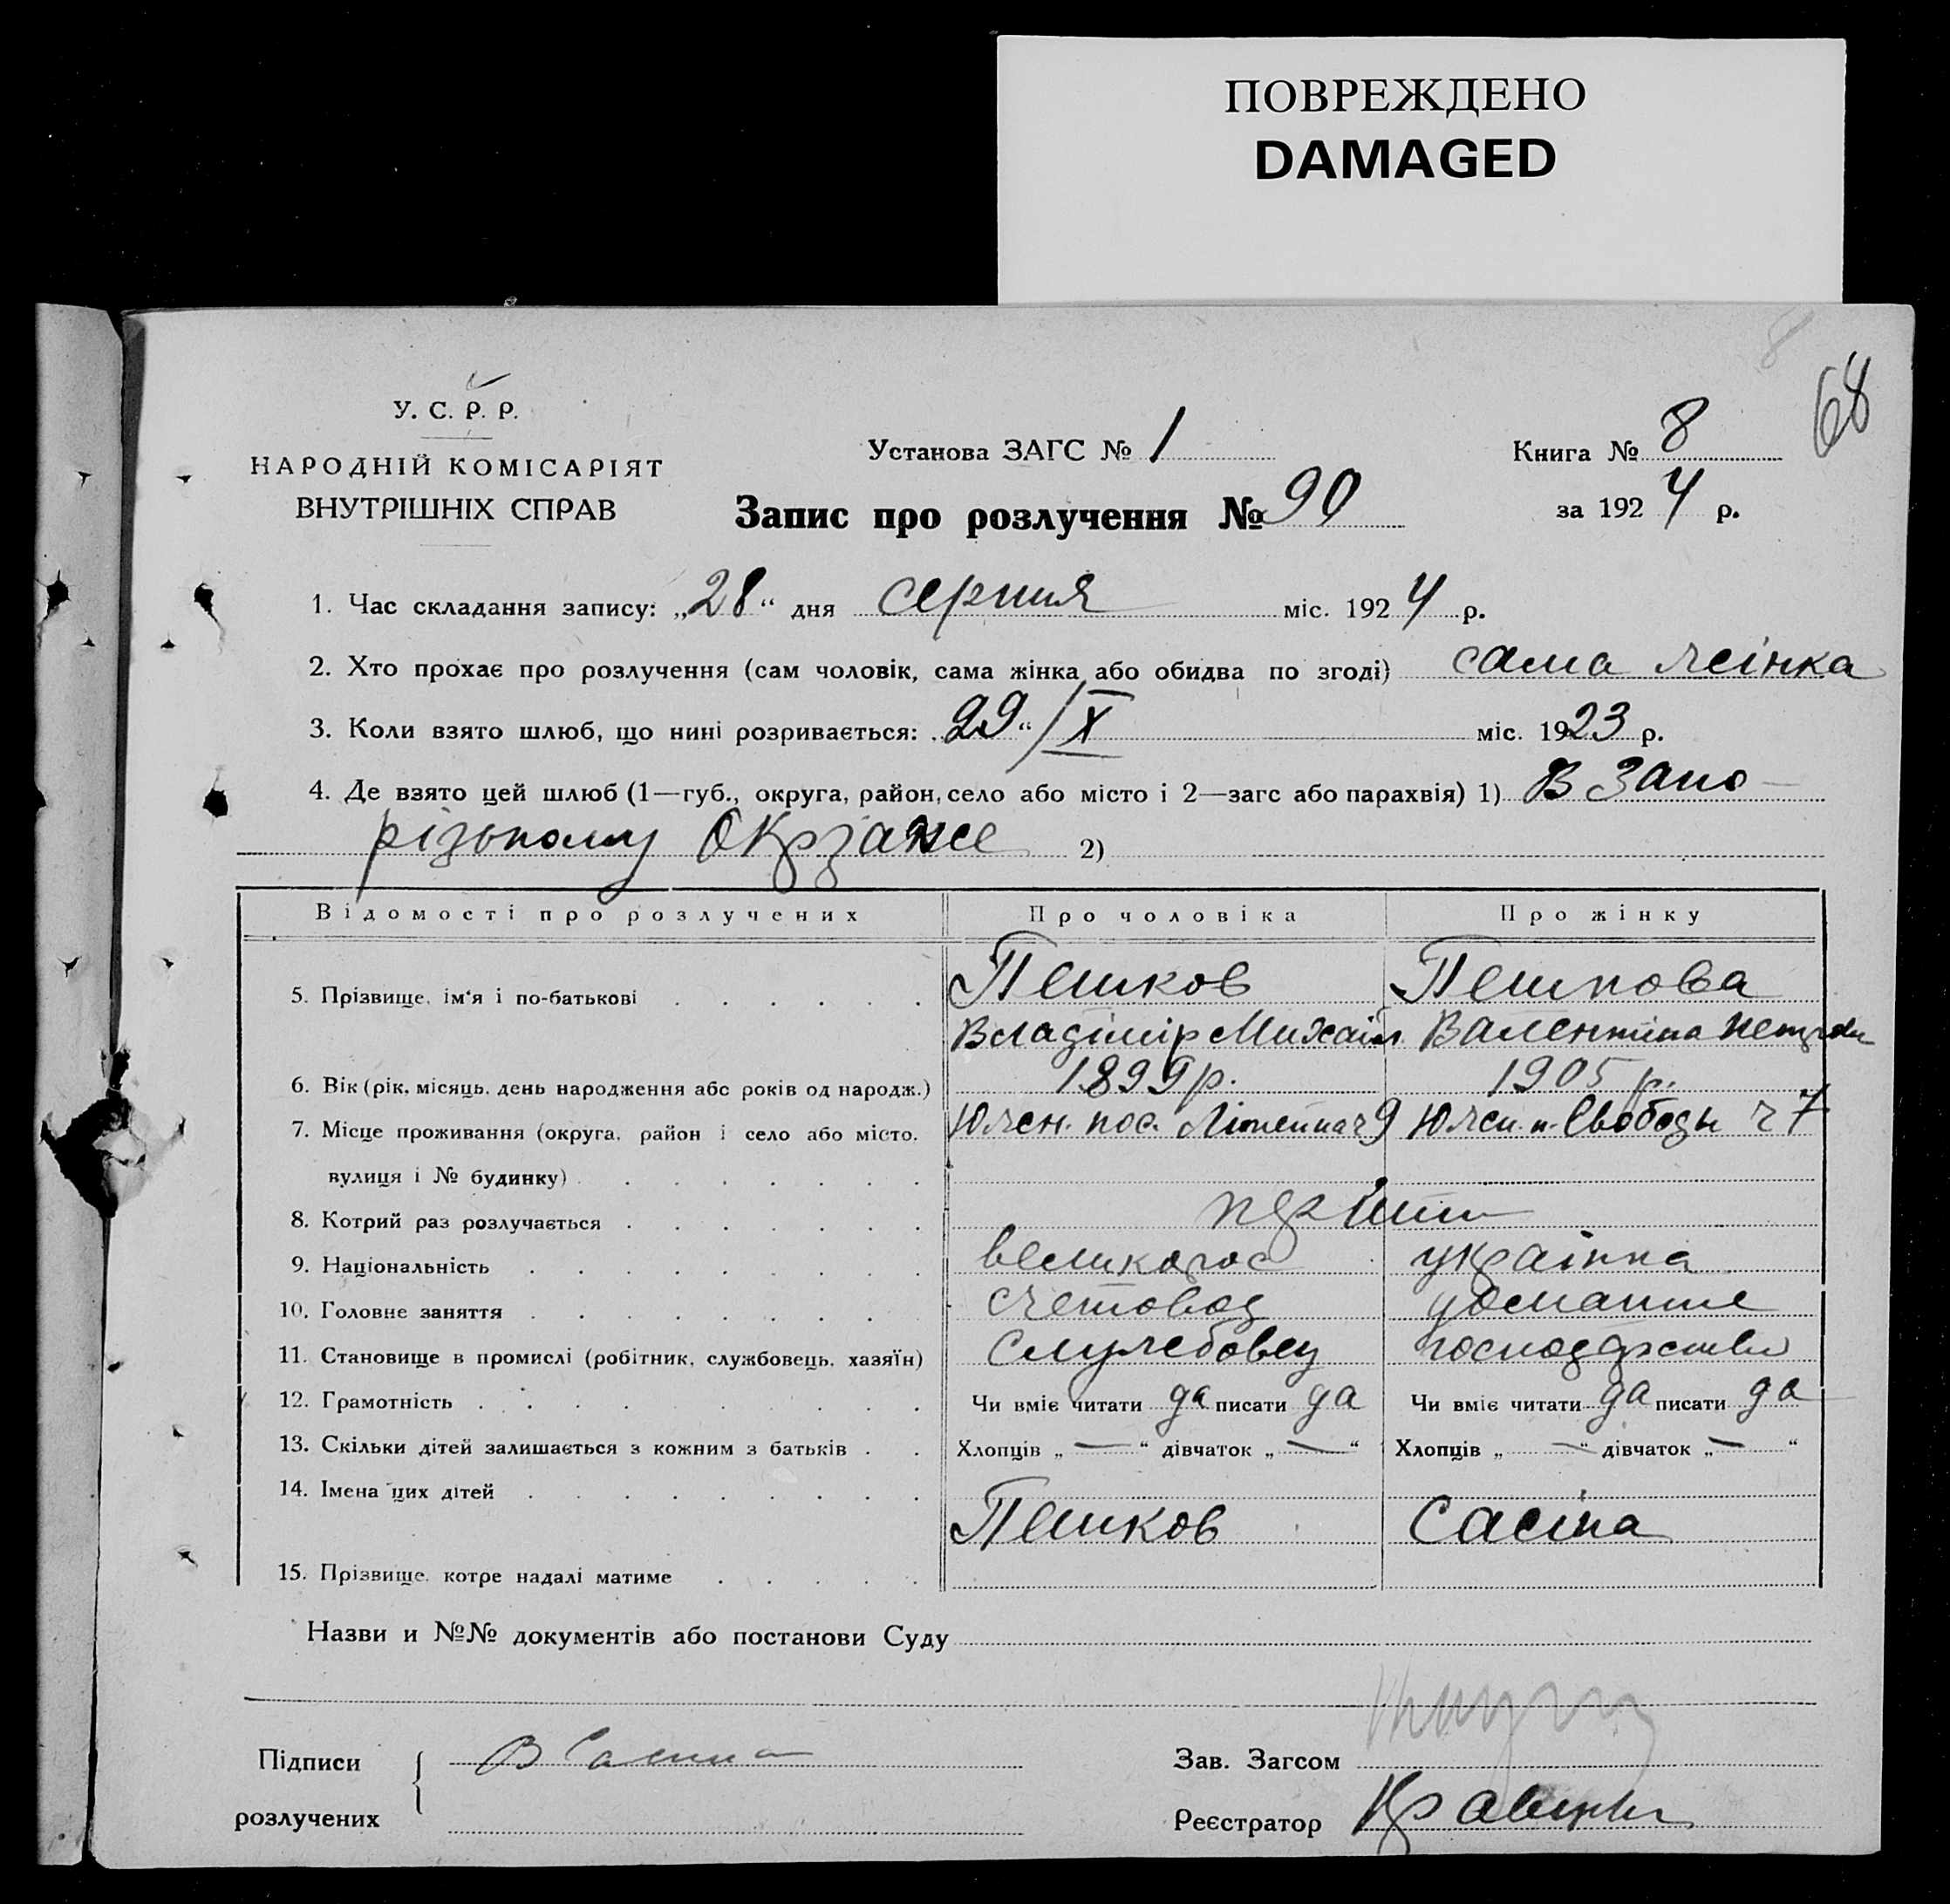 ПОВРЕЖДЕНО
DAMAGED
8
68
У. С. Р. Р.
НАРОДНІЙ КОМІСАРІЯТ
ВНУТРІШНІХ СПРАВ
Установа ЗАГС № 1
Книга № 8
Запис про розлучення № 90
за 1924 р.
1. Час складання запису: „28“ дня серпня міс. 1924 р.
2. Хто прохає про розлучення (сам чоловік, сама жінка або обидва по згоді) сама жінка
3. Коли взято шлюб, що нині розривається: 29“/X міс. 1923 р.
4. Де взято цей шлюб (1—губ., округа, район, село або місто і 2—загс або парахвія) 1) В Запо
різькому Окрзагсе 2)
Відомості про розлучених Про чоловіка Про жінку
5. Прізвище, ім‘я і по-батькові Пешков Пешкова
Владімір Михайл. Валентина
6. Вік (рік, місяць, день народження або років од народж.) 1899 р. 1905 р.
7. Місце проживання (округа, район і село або місто, Южен. пос. 9 Южен. п. Свободы ч 7
вулиця і № будинку)
8. Котрий раз розлучається перший
9. Національність великорос українка
10. Головне заняття счетовод домашнє
11. Становище в промислі (робітник, службовець, хазяїн) служебовец господарство
12. Грамотність Чи вміє читати да писати да Чи вміє читати да писати да
13. Скільки дітей залишається з кожним з батьків Хлопців „—“ дівчаток „—“ Хлопців „—“ дівчаток „—“
14. Імена цих дітей
Пешков Сасіна
15. Прізвище, котре надалі матиме
Назви и №№ документів або постанови Суду
Підписи В Сасина
Зав. Загсом
розлучених
Реєстратор